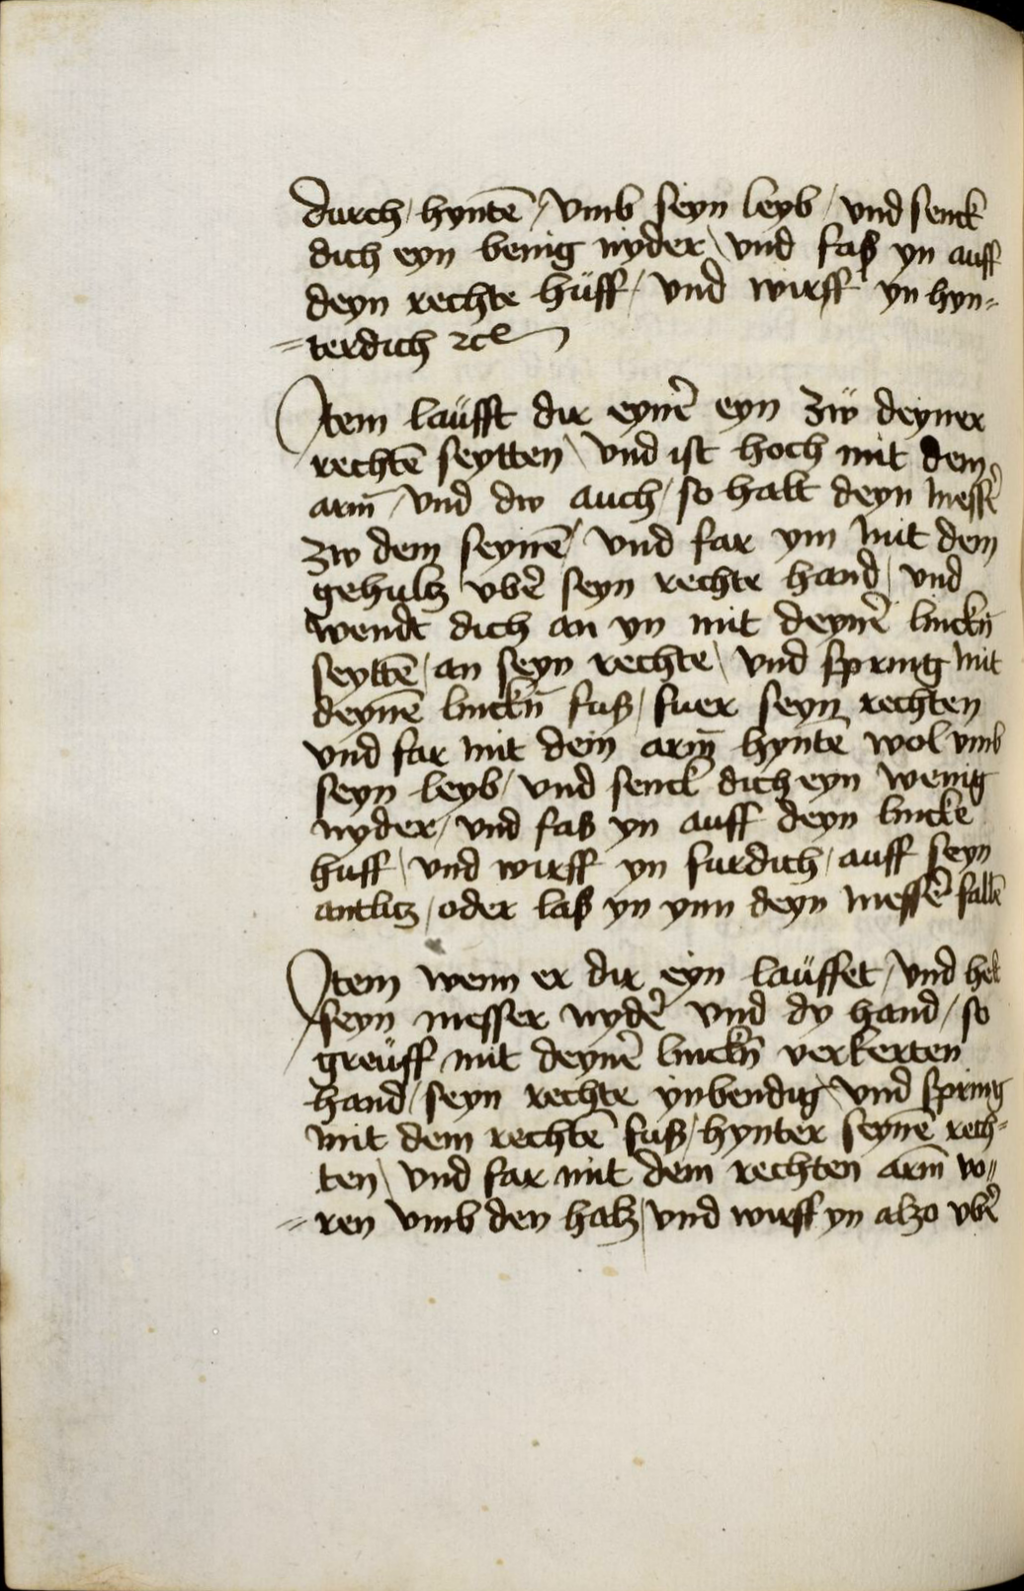 durch / hyntē / vmb seyn leyb / vnd senck
dich eyn benig nyder / vnd faß yn auff
deyn rechte hüff / vnd wirff yn hyn=
=terdich ꝛcꝭ
Item laüfft dir eynē eyn zẅ deyner
rechtē seytten / vnd ist hoch mit dem
arm̄ / vnd dw auch / so halt deyn messē
zw dem seynē / vnd far ym mit dem
gehultz / vbē seyn rechte hand / vnd
wendt dich an yn mit deynē linckn̄
seyttē / an seyn rechte / vnd spring mit
deynē linckn̄ fuß / fuer seyn rechten
vnd far mit dein arm̄ hyntē wol vmb
seyn leyb / vnd senck dich eyn wenig
nyder / vnd faß yn auff deyn lincke
huff / vnd wirff yn furdich / auff seyn
antlitz / oder laß yn ynn deyn messē fallē
Item wenn er dir eyn laüffet / vnd helt
seyn messer nydē vnd dy hand / so
greüff mit deynē linckn̄ verkerten
hand / seyn rechte ynbendig / vnd spring
mit dem rechtē fuß / hynter seynē rech=
ten / vnd far mit dem rechten arm̄ vo=
=ren vmb den halz / vnd wirff yn alzo vbē